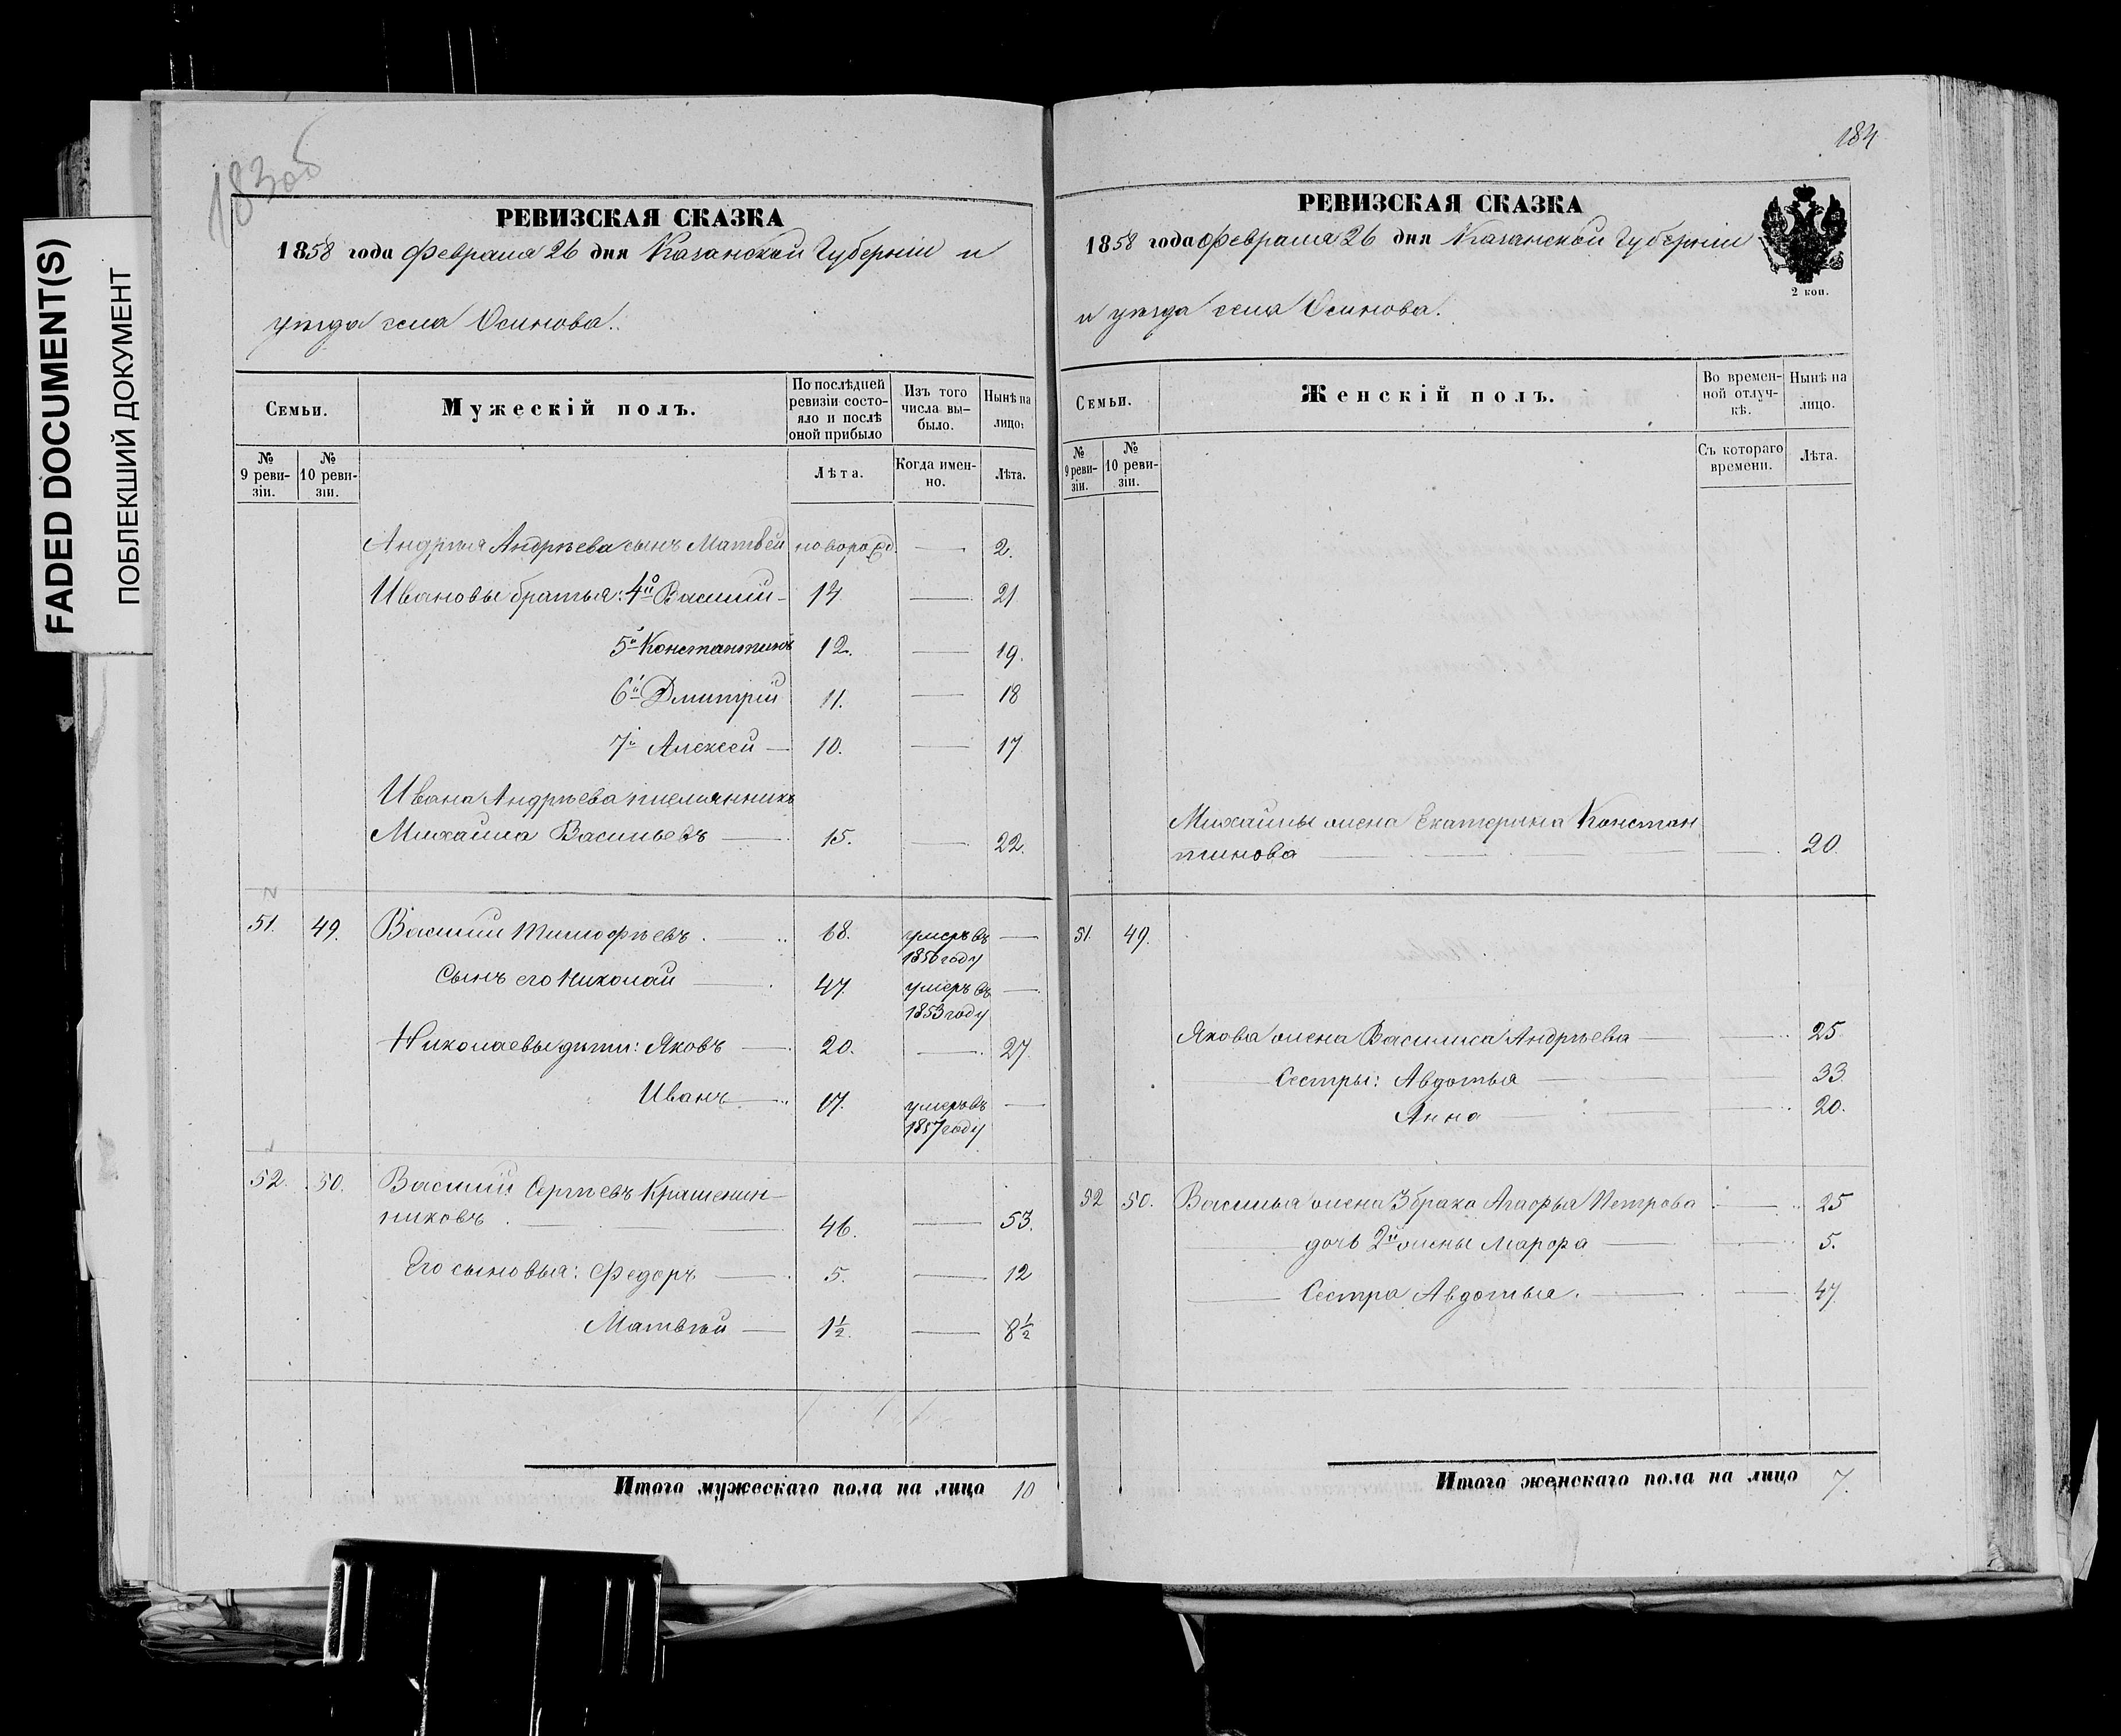 FADED DOCUMENT(S)
ПОБЛЕКШИЙ ДОКУМЕНТ
183об
РЕВИЗСКАЯ СКАЗКА
1858 года Февраля 26 дня Казанской Губерніи и
уѣзда села Осинова.
Семьи.
Мужескій полъ.
По послѣдней ревизіи состояло и послѣ оной прибыло
Изъ того числа вы-было.
Нынѣ на лицо.
№ 9 реви-зіи.
№ 10 реви-зіи.
Лѣта.
Когда имен-но.
Лѣта.
Андрея Андрѣева сынъ Матвей новорожд. — 2.
Ивановы братья: 4й Василій — 14 — 21
5й Константинъ 12. — 19.
6й Дмитрій 11. — 18
7й Алексей — 10. — 17
Ивана Андрѣева племянникъ
Михайла Васильевъ — 15. — 22.
51. 49. Василій Тимофѣевъ. — 68. умеръ въ —
1856 году
Сынъ его Николай — 47. умеръ въ —
1853 году
Николаевы дѣти: Яковъ — 20. — 27.
Иванъ — 17. умеръ въ —
1857 году
52. 50. Василій Сергѣевъ Крашенин-
никовъ. — 46. — 53.
Его сыновья: Федоръ — 5. — 12
Матвѣй — 1½. — 8½
Итого мужескаго пола на лицо 10
184
РЕВИЗСКАЯ СКАЗКА
1858 года Февраля 26 дня Казанской Губерніи
2 коп.
и уѣзда села Осинова.
Семьи.
Женскій полъ.
Во времен-ной отлуч-кѣ.
Нынѣ на лицо.
№ 9 реви-зіи.
№ 10 реви-зіи.
Съ котораго времени.
Лѣта.
Михайлы жена Екатерина Констан
тинова — — 20.
51. 49.
Якова жена Василиса Андрѣева — — 25
Сестры: Авдотья — — 33
Анна — — 20.
52 50. Василья жена 3 брака Агафья Петрова — 25
дочь 2й жены Марфа — — 5.
Сестра Авдотья. — — 47
Итого женскаго пола на лицо 7.